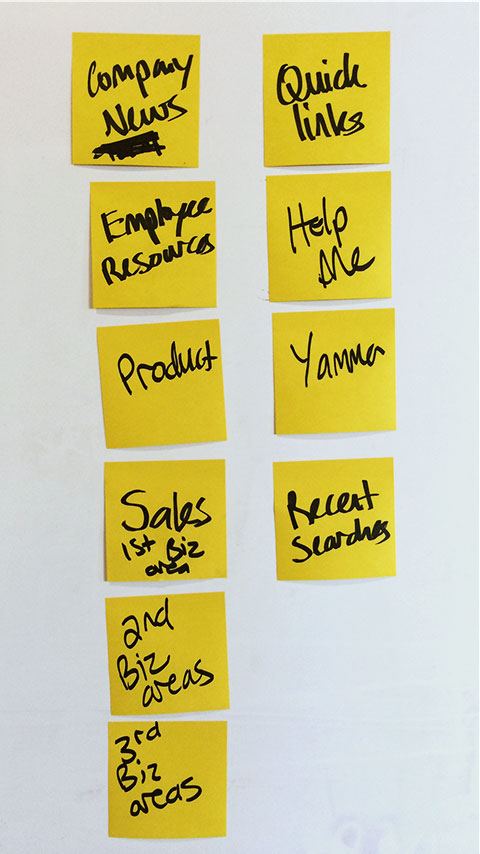 Company
News
Employee
Resources
Product
Sales
1st Biz
area
2nd
Biz
areas
3rd
Biz
areas
Quick
links
Help
Me
Yammer
Recent
Searches